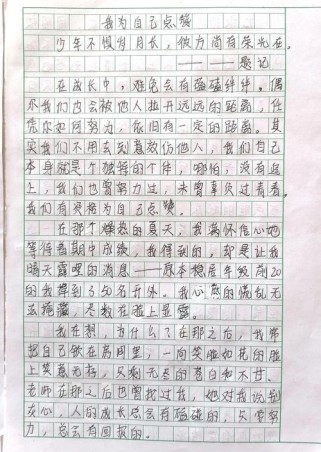 我为自己点赞
少年不惧岁月长,彼方尚有荣光在。
——题记
在成长中,难免会有磕磕绊绊。偶
尔我们也会被他人拉开远远的距离,任
凭你如何努力,依旧有一定的距离。其
实我们不用去刻意模仿他人,我们自己
本身就是个独特的个体,哪怕,没有追
上,我们也曾努力过,未曾辜负过青春。
我们有资格为自己点赞。
在那个燥热的夏天,我满怀信心地
等待着期中成绩,我得到的,却是让我
晴天霹雳的消息——原本稳居年级前20
的我掉到了50名开外。我心底的慌乱无
法掩藏,尽数在脸上显露。
我在想,为什么?在那之后,我常
把自己锁在房间里,一向笑脸如花的脸
上笑意无存,只剩无尽的苍白和不甘。
老师在那之后也曾找过我,她对我说别
灰心,人的成长总会有磕碰的,只要努
力,总会有回报的。